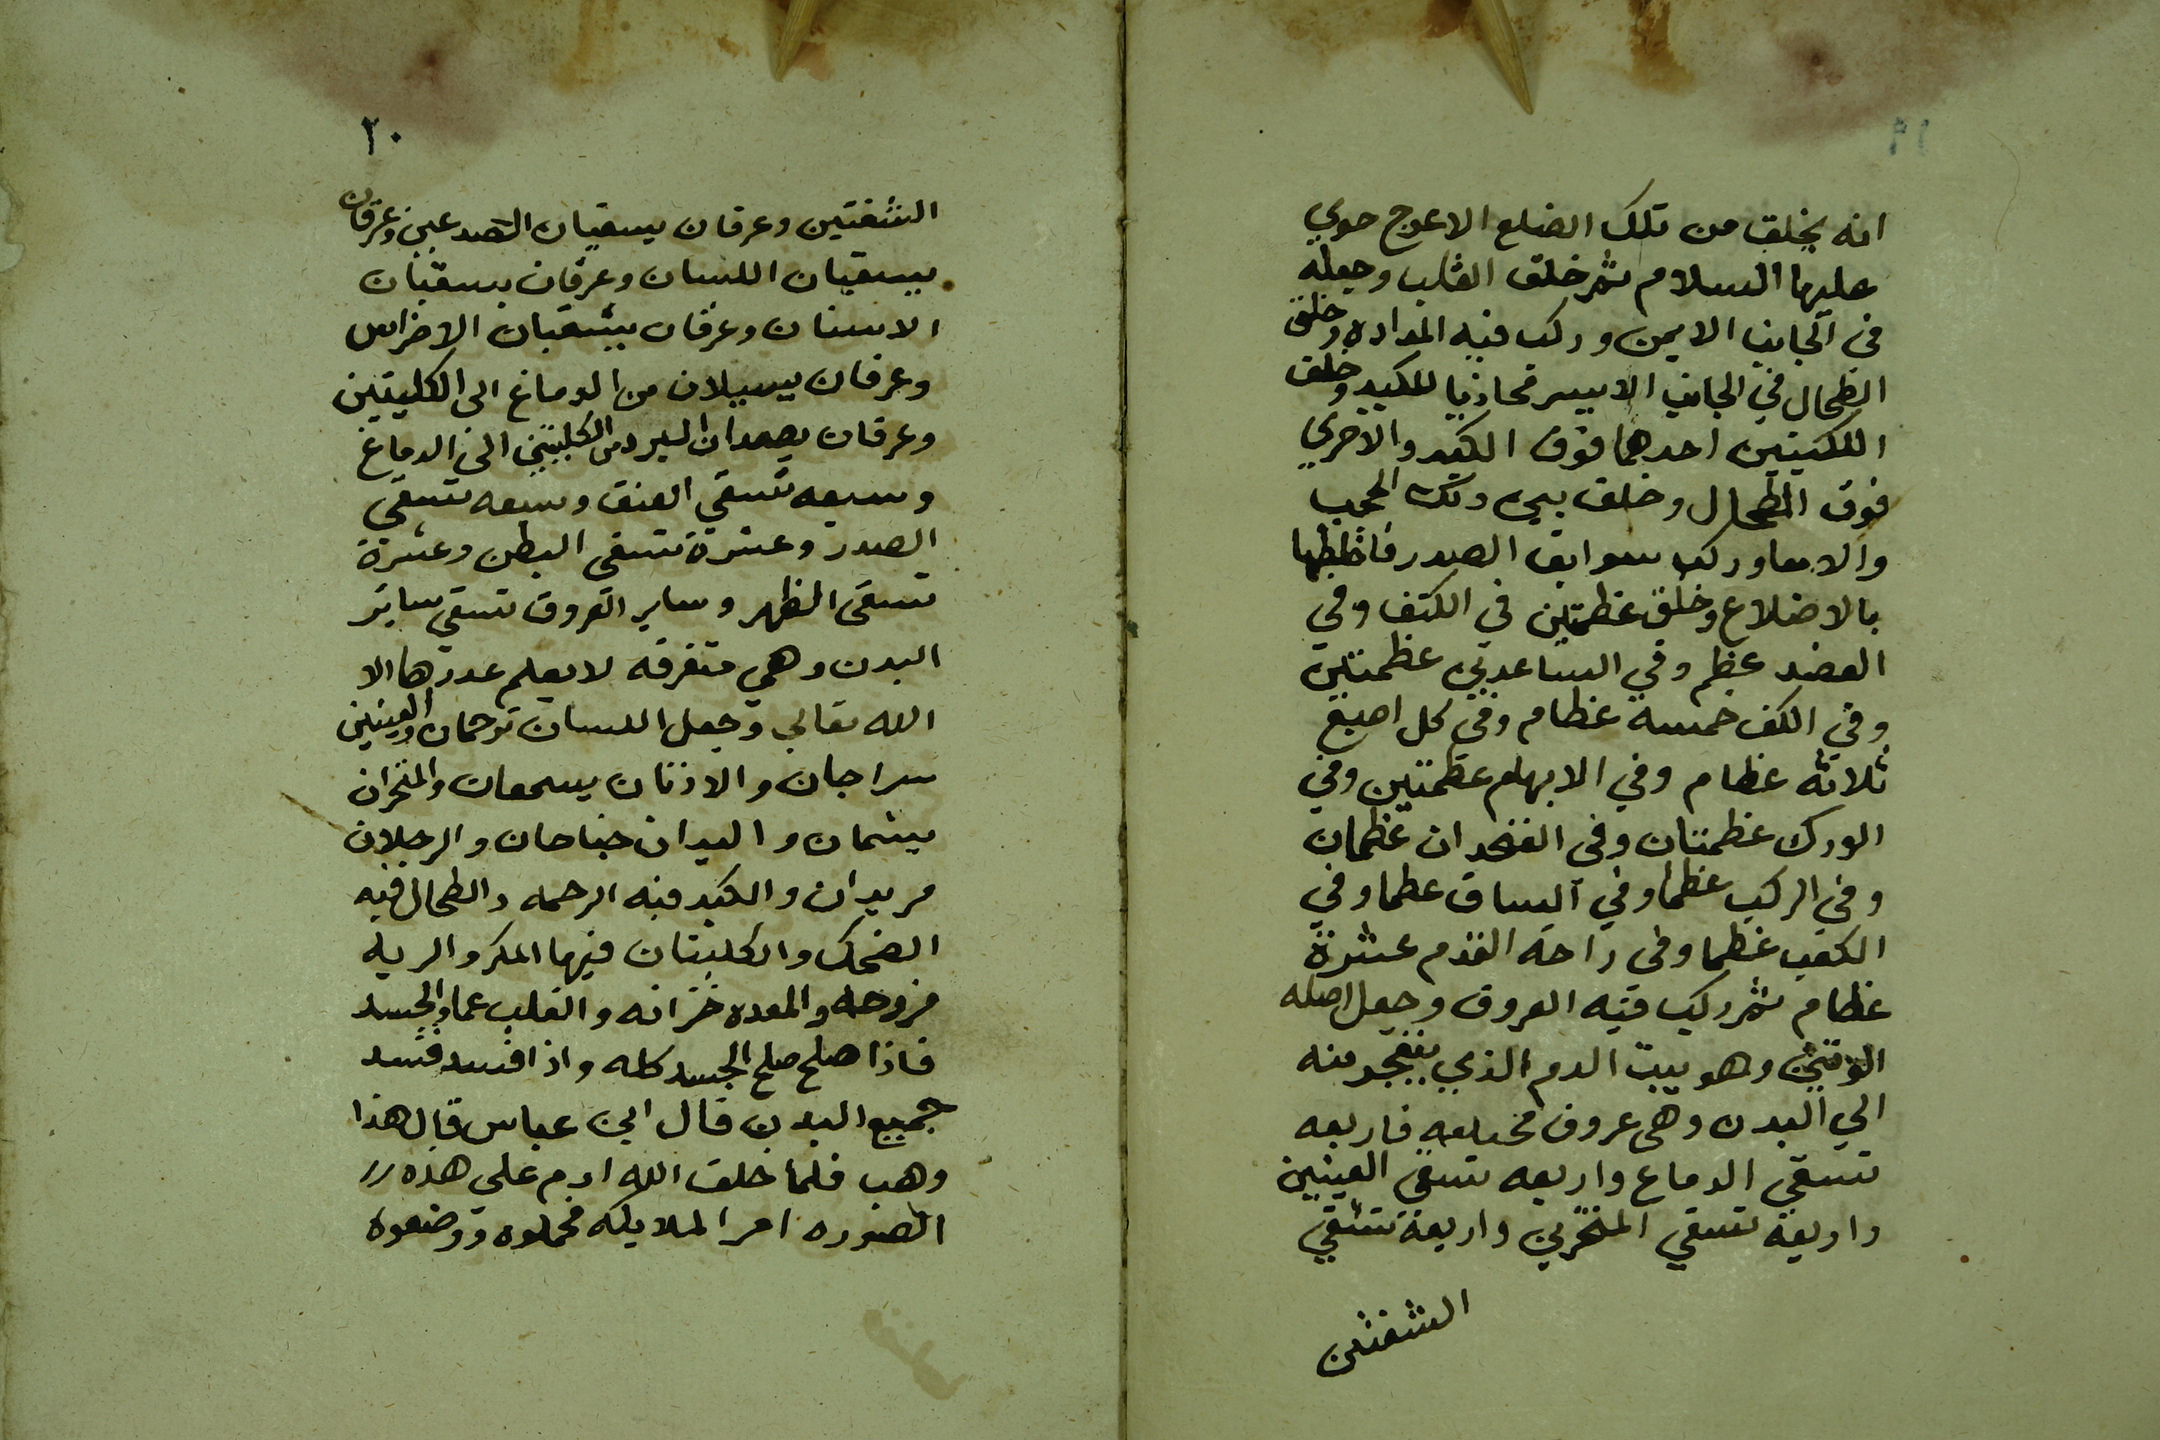 انه يخلق من تلك الضلع الاعوج حوي
عليها السلام ثم خلق القلب وجعله
في الجانب الايمن وركب فيه المراره وخلق
الطحال في الجانب الايسر محاذيا للكبد وخلق
الكليتين احدهما فوق الكبد والاخري
فوق الطحال وخلق بين ذلك الحجب
والامعا وركب سوابق الصدر فاخلطها
بالاضلاع وخلق عظمتين في الكتف وفي
العضد عظم وفي الساعدين عظمتين
وفي الكف خمسة عظام وفي كل اصبع
ثلاثة عظام وفي الابهام عظمتين وفي
الورك عظمتان وفي الفخدان عظمان
وفي الركب عظما وفي الساق عظما وفي
الكعب عظما وفي راحة القدم عشرة
عظام ثم ركب فيه العروق وجعل اصله
الوتين وهو بيت الدم الذي ينفجر منه
الي البدن وهي عروق مختلعه فاربعه
تسقي الدماع واربعه تسقي العينين
واربعة تسقي المنخرين واربعة تسقي
الشفتين
٢٠
الشفتين وعرقان يسقيان الصدغين وعرقان
يسقيان اللسان وعرقان يسقيان
الاسنان وعرقان يسقيان الاضراس
وعرقان يسيلان من الدماغ الى الكليتين
وعرقان يصعدان البرد من الكليتين الى الدماغ
وسبعه تسقي العنق وسبعه تسقي
الصدر وعشرة تسقي البطن وعشرة
تسقى الظهر وساير العروق تسقي سائر
البدن وهي متفرقه لا يعلم عددها الا
الله تعالي وجعل اللسان ترجمان والعينين
سراجان والاذنان يسمعان والمنخران
يشمان واليدان جناحان والرجلان
مريدان والكبد فيه الرحمه والطحال فيه
الضحك والكليتان فيها المكر والريه
مروحه والمعده خزانه والقلب عماد الجسد
فاذا صلح صلح الجسد كله واذا فسد فسد
جميع البدن قال ابن عباس قال هذا
وهب فلما خلق الله ادم على هذه
الصوره امر الملايكه فحملوه ووضعوه